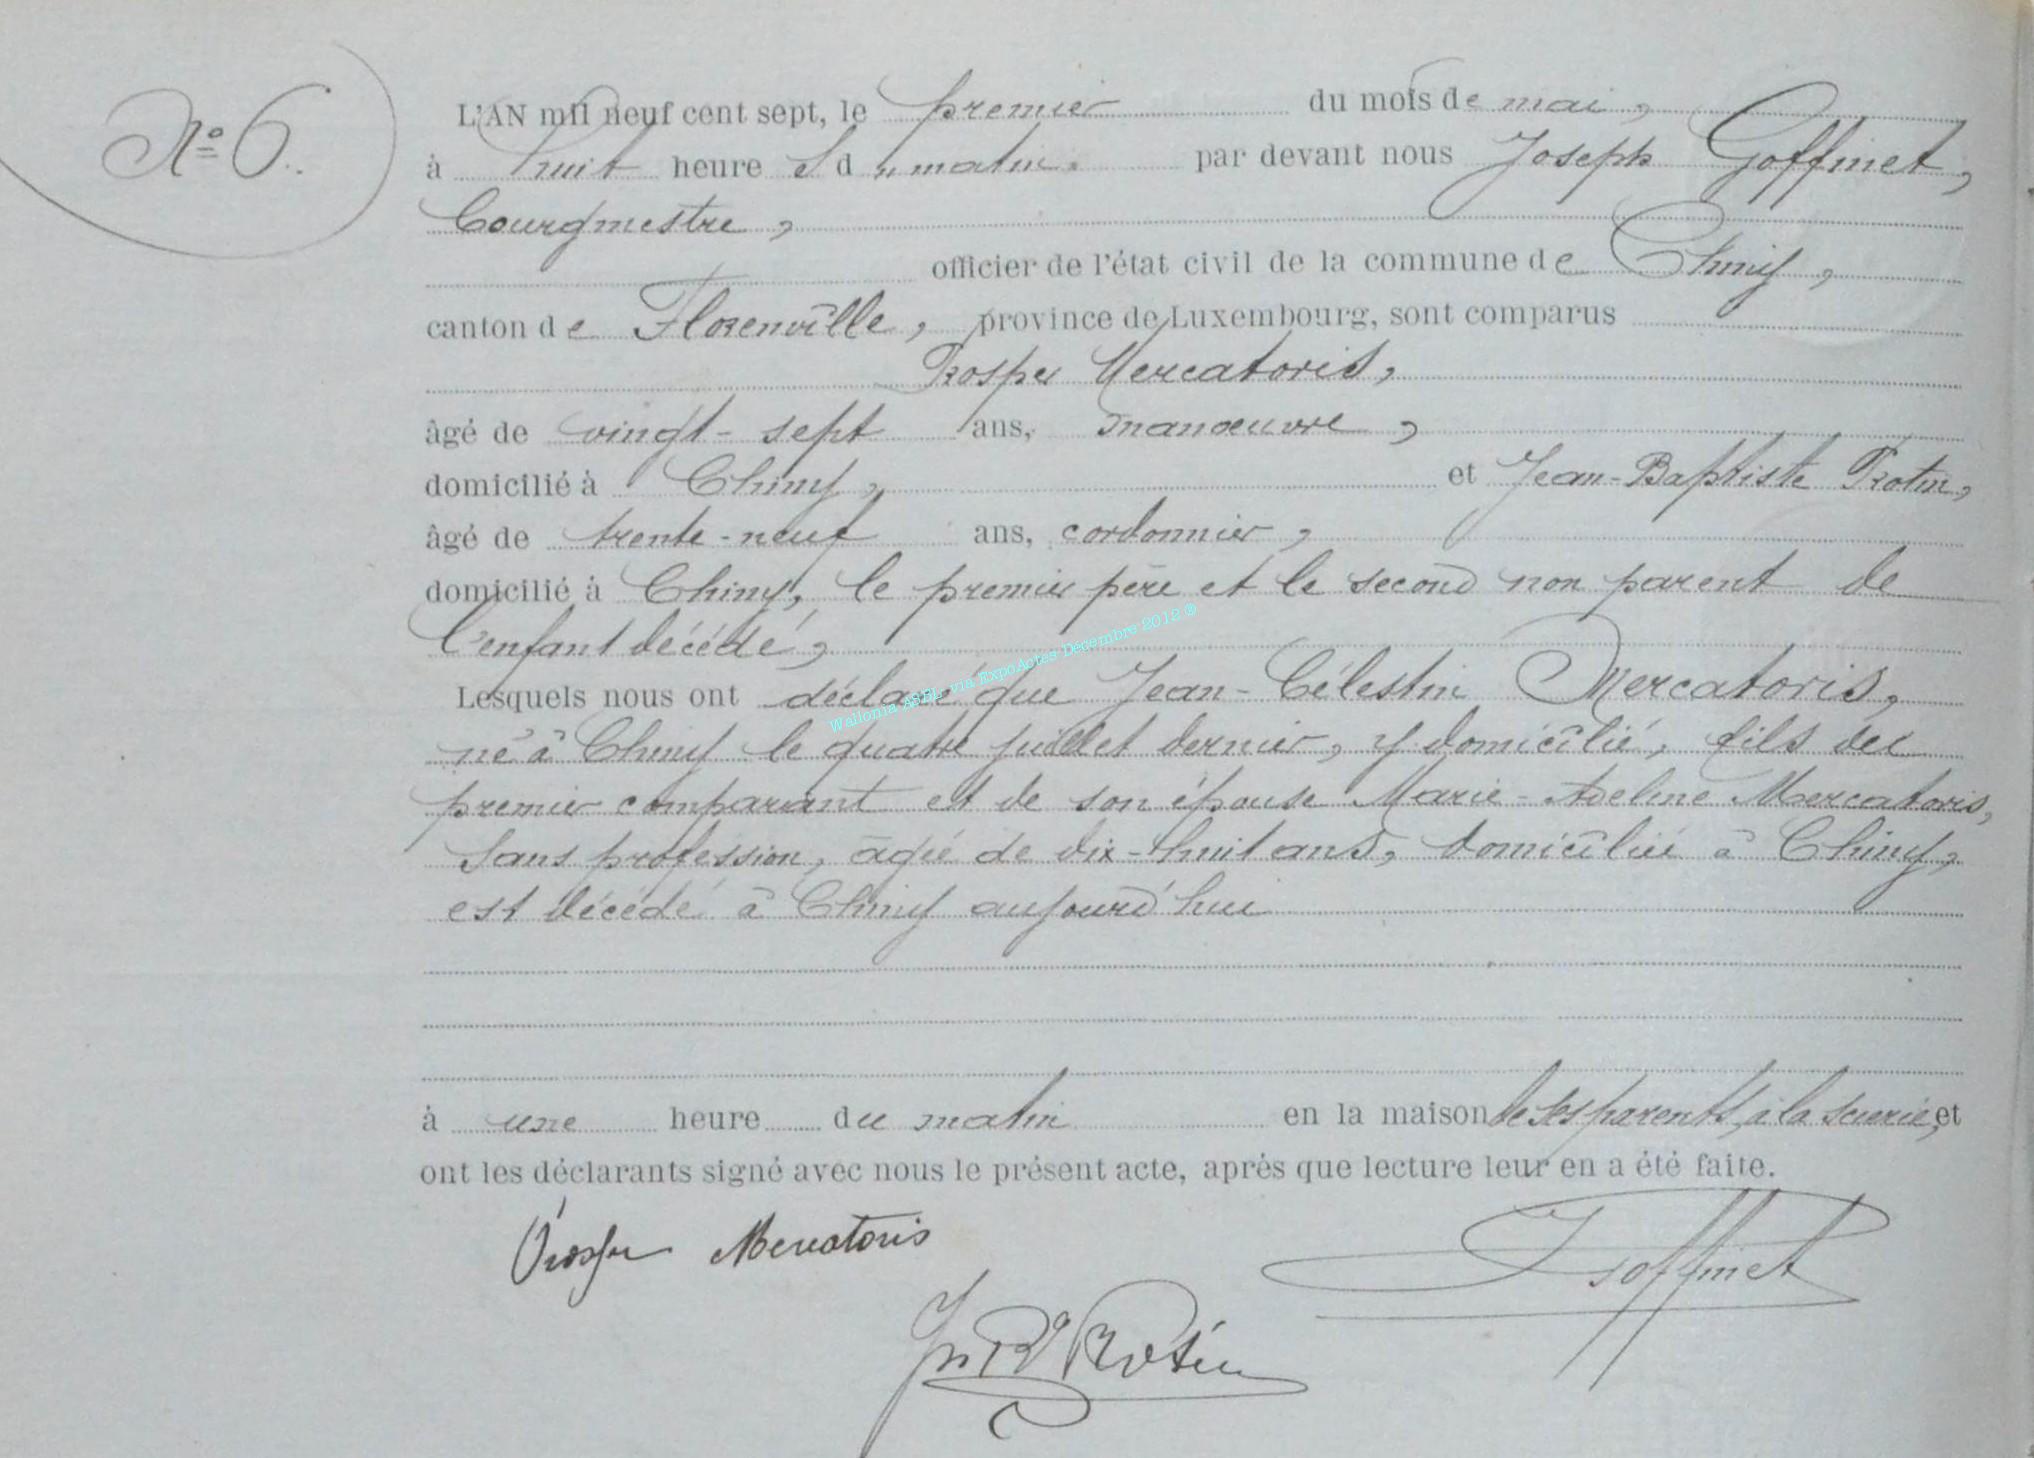 N° 6.
L'AN mil neuf cent sept, le premier du mois de mai,
à huit heures du matin. par devant nous Joseph Goffinet,
bourgmestre,
officier de l'état civil de la commune de Chiny,
canton de Florenville, province de Luxembourg, sont comparus
Prosper Mercatoris,
âgé de vingt-sept ans, manoeuvre,
domicilié à Chiny, et Jean-Baptiste Rotin,
âgé de trente-neuf ans, cordonnier,
domicilié à Chiny, le premier père et le second non parent de
l'enfant décédé,
Lesquels nous ont déclaré que Jean-Célestin Mercatoris,
né à Chiny le quatre juillet dernier, y domicilié, fils du
premier comparant et de son épouse Marie-Adeline Mercatoris,
sans profession, âgée de dix-huit ans, domiciliée à Chiny,
est décédé à Chiny aujourd'hui
à une heure du matin en la maison de ses parents, à la scierie, et
ont les déclarants signé avec nous le présent acte, après que lecture leur en a été faite.
Prosper Mercatoris
JGoffinet
Jn Bte Rotin
Wallonia ASBL via ExpoActes Décembre 2012 ®